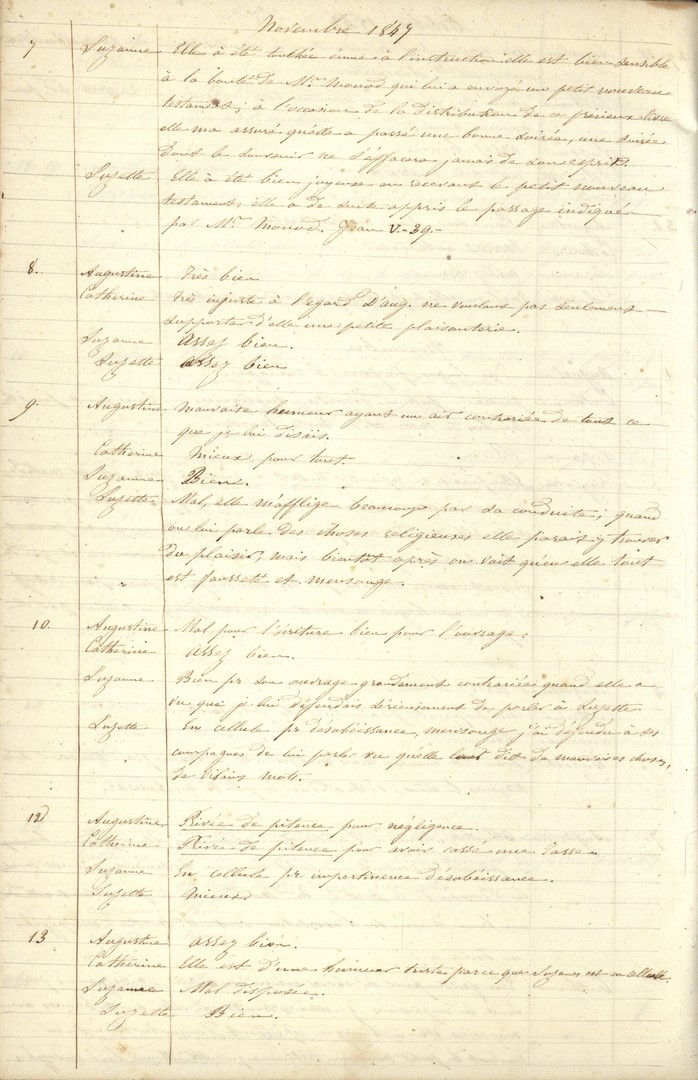 Novembre 1847
7 Suzanne Elle à été touchée émue à l'instruction elle est bien sensible
à la bonté de Mr. Monod qui lui a envoyé un petit nouveau
testament; à l'occasion de la distribution de ce précieux livre
elle m'a assuré qu'elle a passé une bonne soirée, une soirée
dont le souvenir ne s'éffacera jamais de son esprit.
Suzette Elle à été bien joyeuse en recevant le petit nouveau
testament; elle a de suite appris le passage indiqué
par Mr. Monod. Jean V.-39.-
8. Augustine Très bien
Catherine Très injuste à l'egard D'aug. ne voulant pas seulement
supporter d'elle une petite plaisanterie.
Suzanne assez bien.
Suzette assez bien
9. Augustine Mauvaise humeur ayant un air contrariée de tout ce
que je lui disais.
Catherine Mieux pour tout.
Suzanne Bien.
Suzette Mal, elle m'afflige beaucoup par sa conduite; quand
on lui parle des choses religieuses elle parais y trouver
du plaisir, mais bientôt après on voit qu'en elle tout
est fausseté et mensonge.
10. Augustine Mal pour l'écriture bien pour l'ouvrage.
Catherine assez bien.
Suzanne Bien pr son ouvrage grandement contrariée quand elle a
vu que je lui défendais sérieusement de parler à Suzette
Suzette En cellule pr désobéissance, mensonge, j'ai défendu à ses
compagnes de lui parler vu qu'elle leur dit de mauvaises choses,
de vilains mots.
12 Augustine Privée de pitence pour négligence.
Catherine Privée de pitence pour avoir cassé une tasse.
Suzanne En cellule pr impertinence désobéissance.
Suzette Mieux.
13 Augustine assez bien.
Catherine Elle est d'une humeur triste parce que Suzanne est en cellule.
Suzanne Mal disposée.
Suzette Bien.